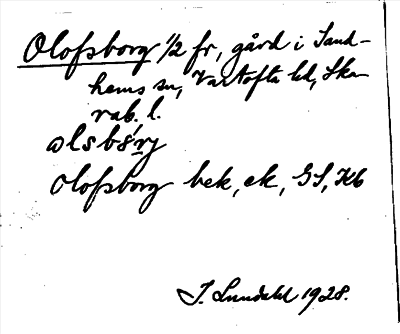 Olofsborg 1/2 fr, gård i Sand-
hems sn, Vartofta hd, Ska-
rab. l.
olsbŏry
Olofsborg bek, ek, GS, Kb
J. Lundahl 1928.